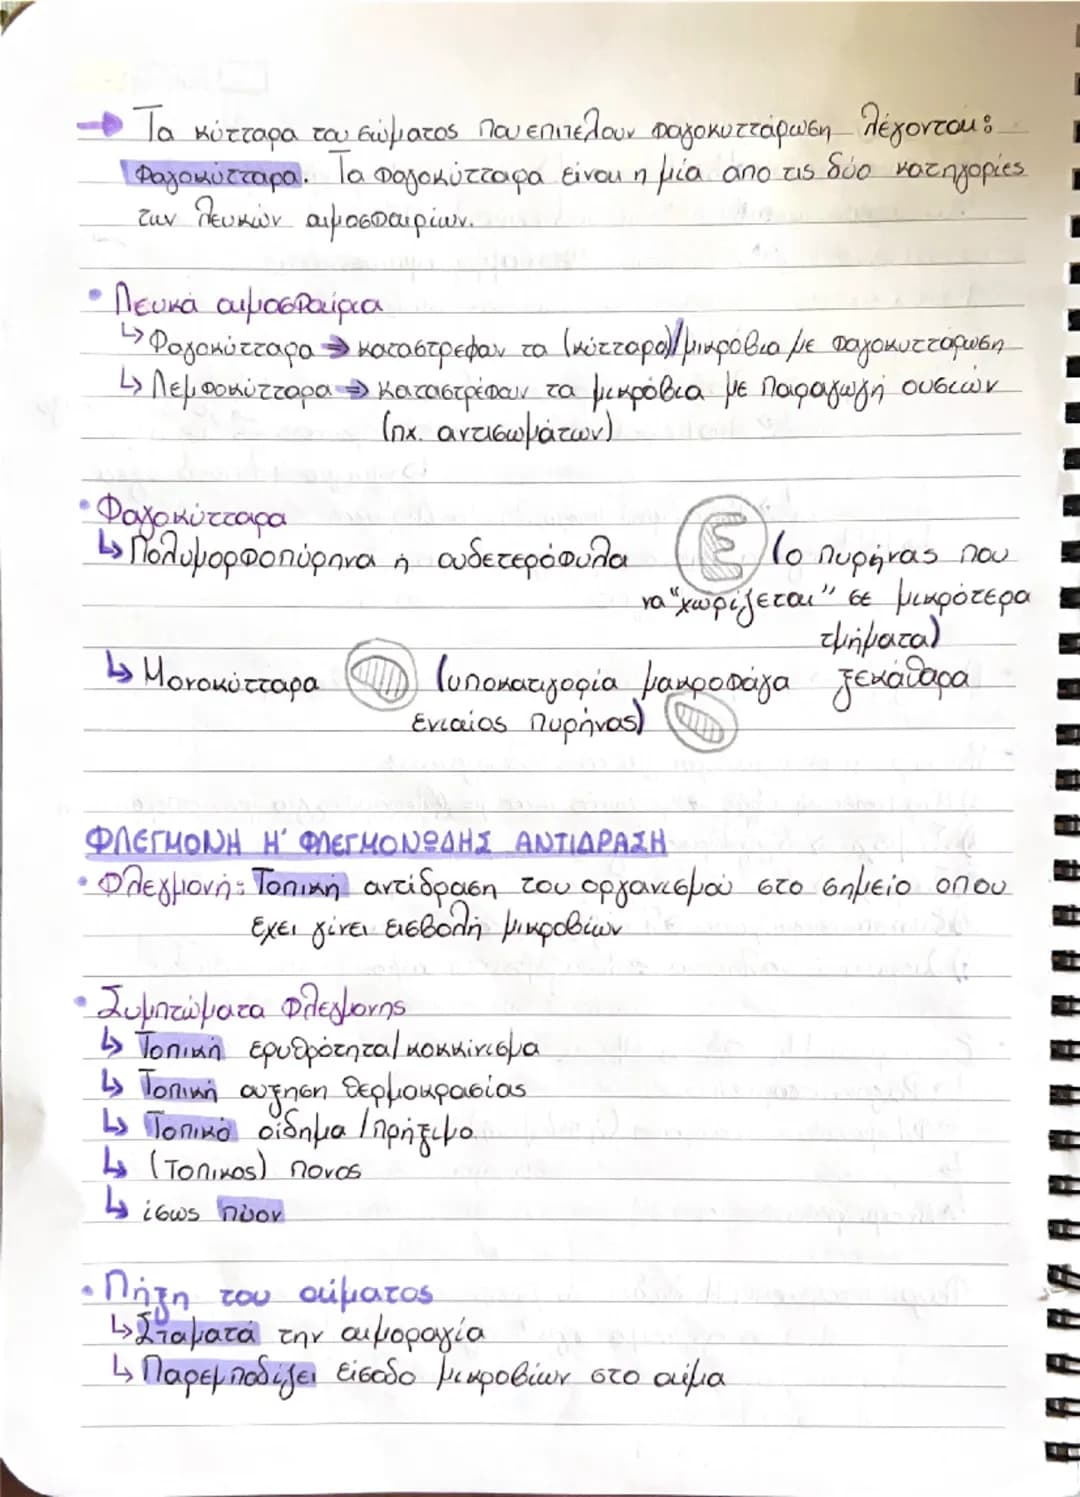 → Τα κύτταρα του σώματος που επιτελουν φαγοκυττάρωση λέγονται:
Φαγοκύτταρα. Τα φαγοκύτταρα είναι η μία απο τις δύο κατηγορίες
των λευκών αιμοσφαιρίων.
• Λευκά αιμοσφαίρια
↳ Φαγοκύτταρα ⇒ καταστρεφουν τα (κύτταρα)/μικρόβια με φαγοκυττάρωση
↳ Λεμφοκύτταρα ⇒ καταστρέφουν τα μικρόβια με παραγωγή ουσιών
(πχ. αντισωμάτων)
• Φαγοκύτταρα
↳ Πολυμορφοπύρηνα ή ουδετερόφυλα (ο πυρήνας που
να "χωρίζεται" σε μικρότερα
τμήματα)
↳ Μονοκύτταρα (υποκατηγορία μακροφάγα ξεκάθαρα
ενιαίος πυρήνας)
ΦΛΕΓΜΟΝΗ Η' ΦΛΕΓΜΟΝΩΔΗΣ ΑΝΤΙΔΡΑΣΗ
• Φλεγμονή: Τοπική αντίδραση του οργανισμού στο σημείο οπου
εχει γίνει εισβολή μικροβίων
• Συμπτώματα Φλεγμονης
↳ Τοπική ερυθρότητα/κοκκίνισμα
↳ Τοπική αυξηση θερμοκρασίας
↳ Τοπικό οίδημα/πρήξιμο
↳ (Τοπικος) πονος
↳ ίσως πύον
• Πήξη του αίματος
↳ Σταματά την αιμοραγία
↳ Παρεμποδίζει είσοδο μικροβίων στο αίμα